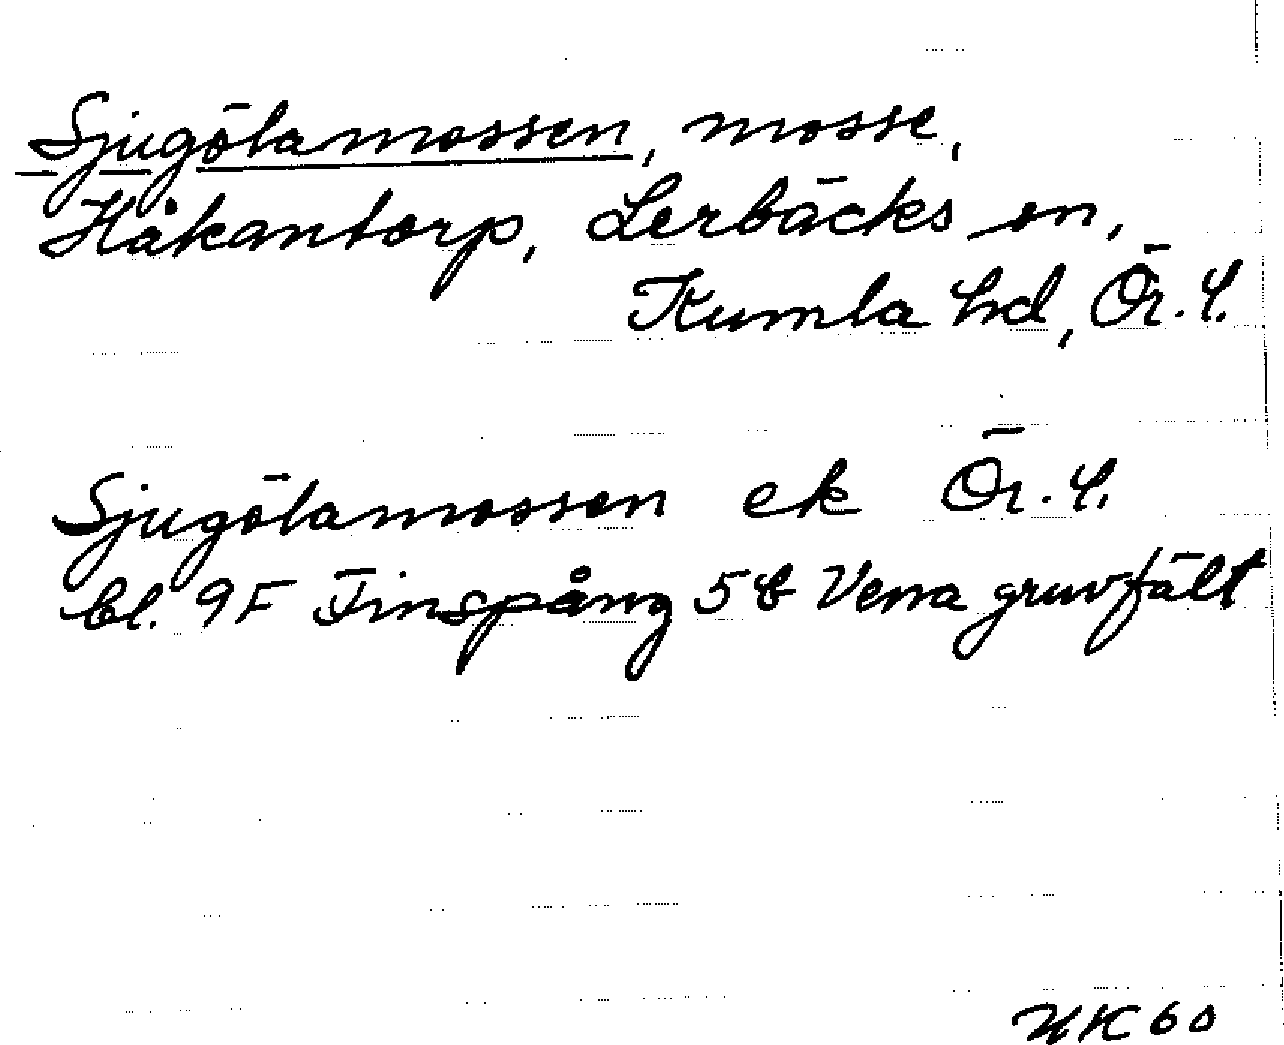 Sjugölamossen, mosse,
Håkantorp, Lerbäcks sn,
Kumla hd, Ör. l.
Sjugölamossen ek Ör. l.
bl. 9F Finspång 5b Vena gruvfält
NK 60